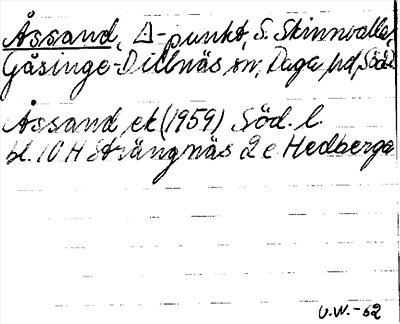 Åssand, △-punkt, S. Skinnvalla,
Gåsinge-Dillnäs sn, Daga hd, Södl
Åssand, ek (1959) Söd. l.
bl. 10 H Strängnäs 2 e Hedberga
V.W.-62